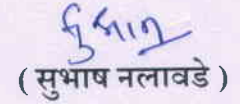 ( सुभाष नलावडे )